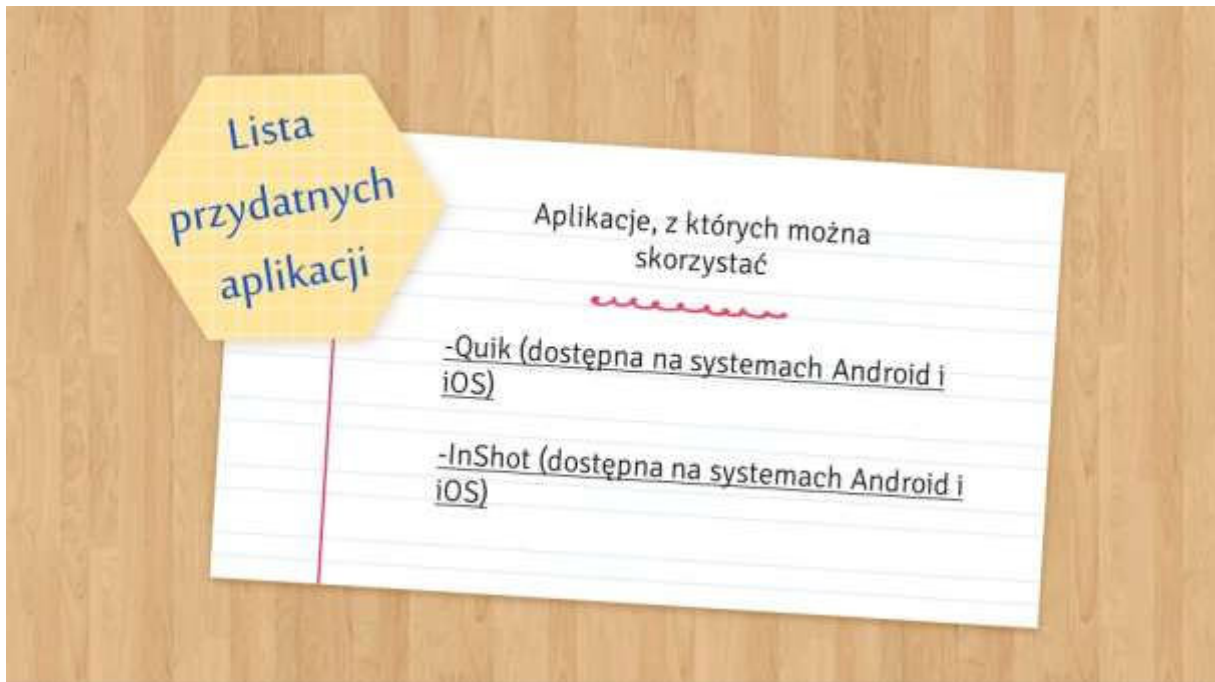 Lista
przydatnych
aplikacji
Aplikacje, z których można
skorzystać
-Quik (dostępna na systemach Android i
iOS)
-InShot (dostępna na systemach Android i
iOS)